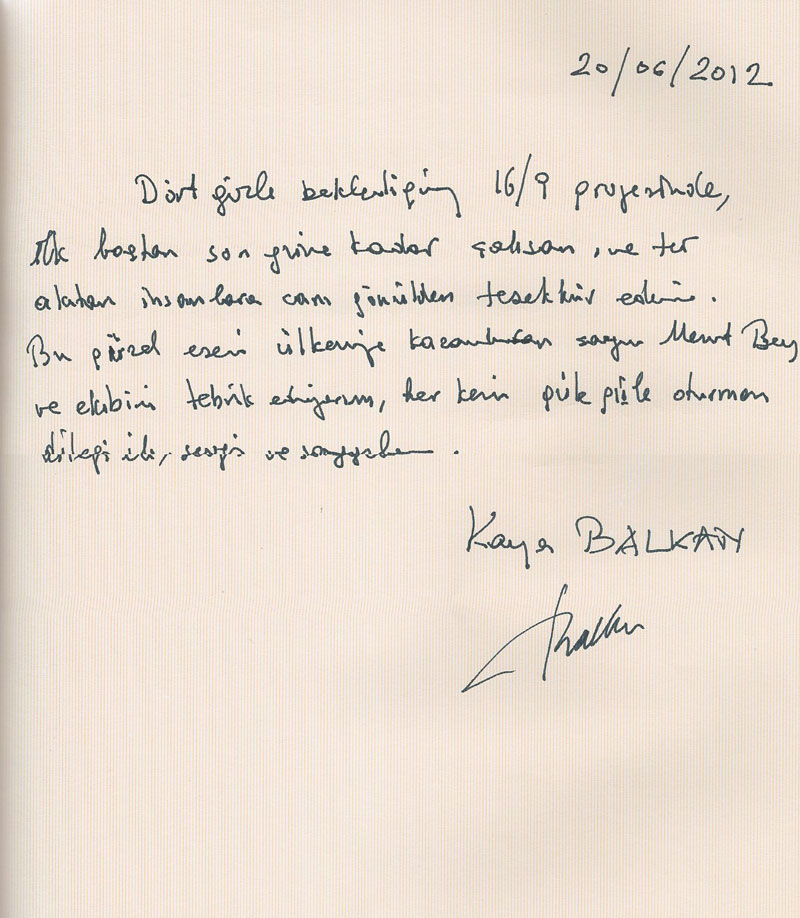 20/06/2012
Dört gözle beklediğim 16/9 projesinde,
ilk baştan son güne kadar çalışan, ve ter
akıtan insanlara can gönülden teşekkür ederim.
Bu güzel eseri ülkemize kazandıran sayın Mesut Bey
ve ekibini tebrik ediyorum, her kesin güle güle oturması
dileği ile, sevgi ve saygıyla.
Kaya BALKAN